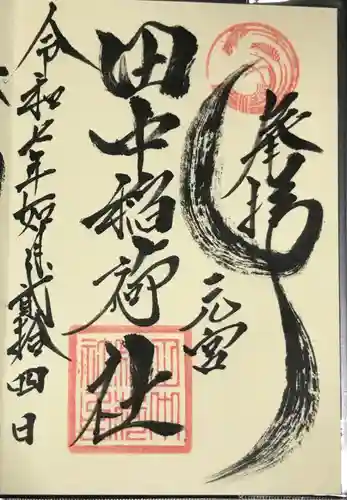 奉拝
元宮
田中稲荷社
令和七年如月貳拾四日